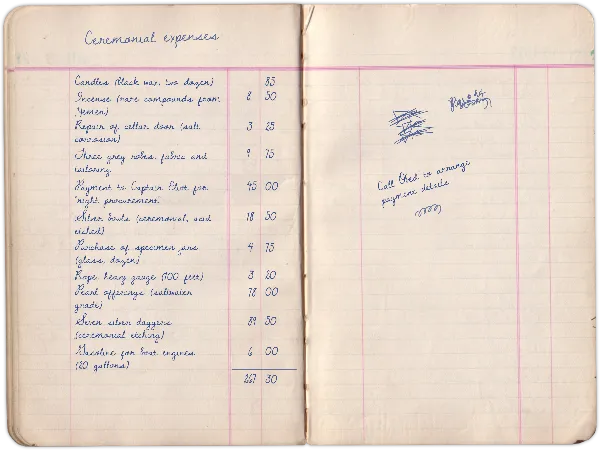 Ceremonial expenses
Candles (black wax, two dozen) 85
Incense (rare compounds from 8 50
Yemen)
Repair of cellar door (salt 3 25
corrosion)
Three grey robes, fabric and 9 75
tailoring.
Payment to Captain Eliot for 45 00
night procurement.
Silver bowls (ceremonial, acid 18 50
etched)
Purchase of specimen jars 4 75
(glass, dozen)
Rope, heavy gauge (100 feet) 3 20
Pearl offerings (saltwater 78 00
grade)
Seven silver daggers 89 50
(ceremonial etching)
Gasoline for boat engines 6 00
(20 gallons)
267 30
Call Obed to arrange
payment details